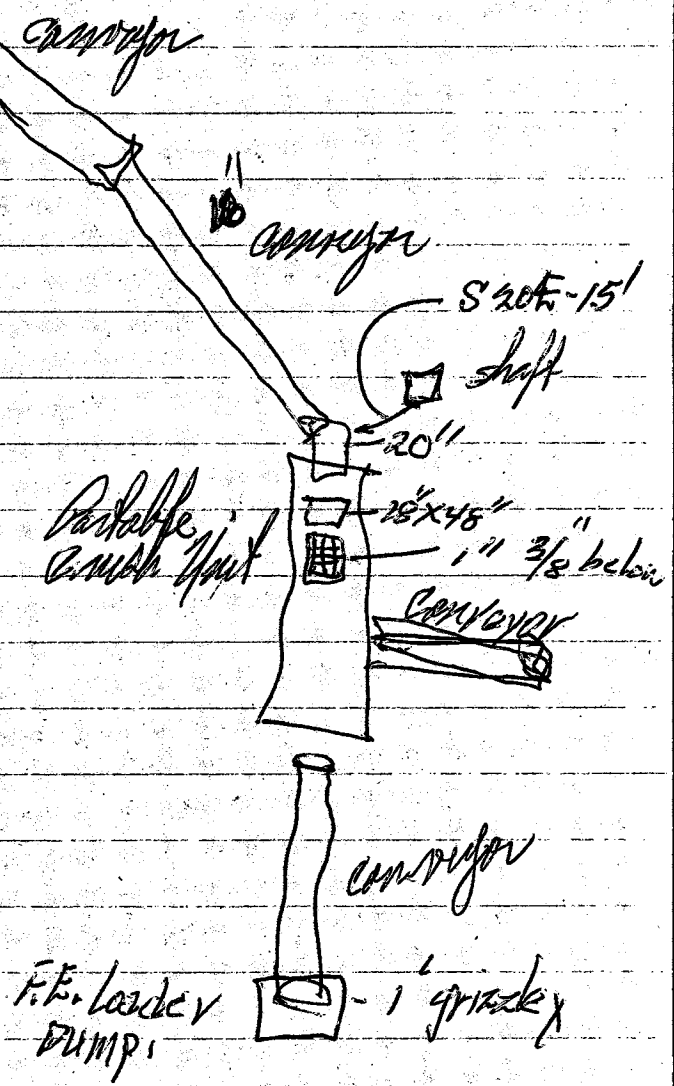 conveyor
18"
conveyor
S 20E-15'
shaft
20"
Portable
Crush Unit
28"x48"
1" 3/8" below
conveyor
conveyor
F.E. Loader
Dump.
1' grizzley